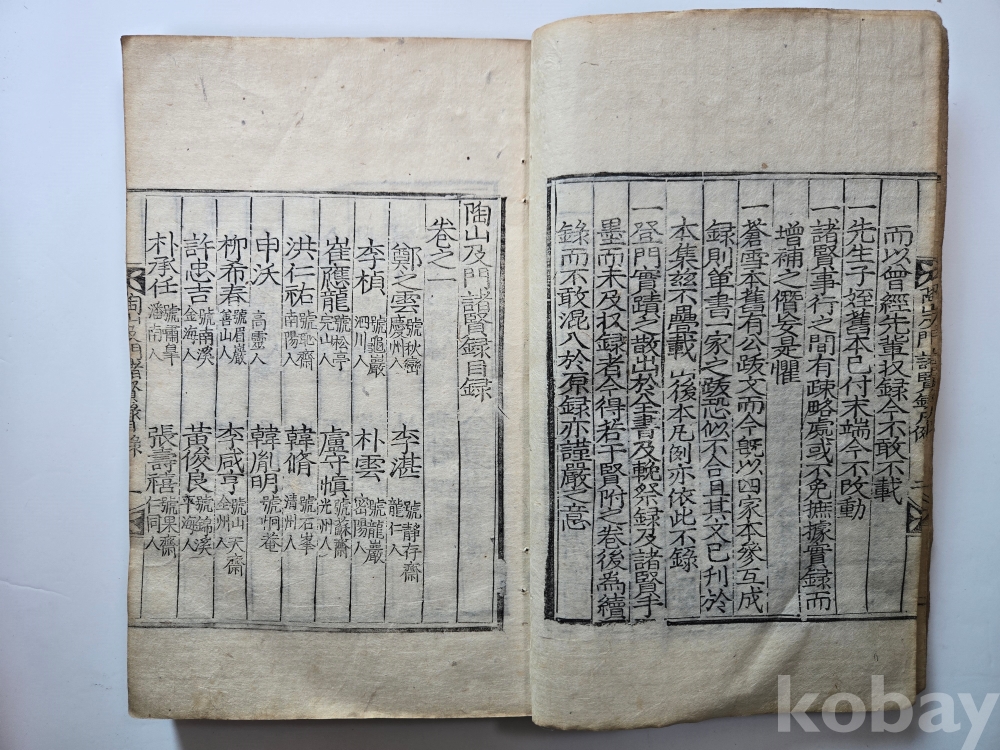 而以曾經先輩収録今不敢不載
一先生子姪舊本已付末端今不改動
一諸賢事行之間有疎略處或不免摭據實録而
增補之僭妄是懼
一蒼雪本舊有公跋文而今旣以四家本參互成
録則單書一家之跋恐似不合且其文已刊於
本集玆不疊載 山後本凡例亦依此不録
一登門實蹟之散出於全書及輓祭録及諸賢手
墨而未及収録者今得若干賢附之卷後爲續
録而不敢混入於原録亦謹嚴之意
陶山及門諸賢録目録
卷之一
鄭之雲 號秋巒 慶州人 李湛 號靜存齋 龍仁人
李楨 號龜巖 泗川人 朴雲 號龍巖 密陽人
崔應龍 號松亭 完山人 盧守愼 號蘇齋 光州人
洪仁祐 號恥齋 南陽人 韓脩 號石峯 清州人
申沃 高靈人 韓胤明 號炯菴
柳希春 號眉巖 善山人 李咸亨 號山天齋 全州人
許忠吉 號南溪 金海人 黃俊良 號錦溪 平海人
朴承任 號嘯皐 潘南人 張壽禧 號果齋 仁同人
kobay